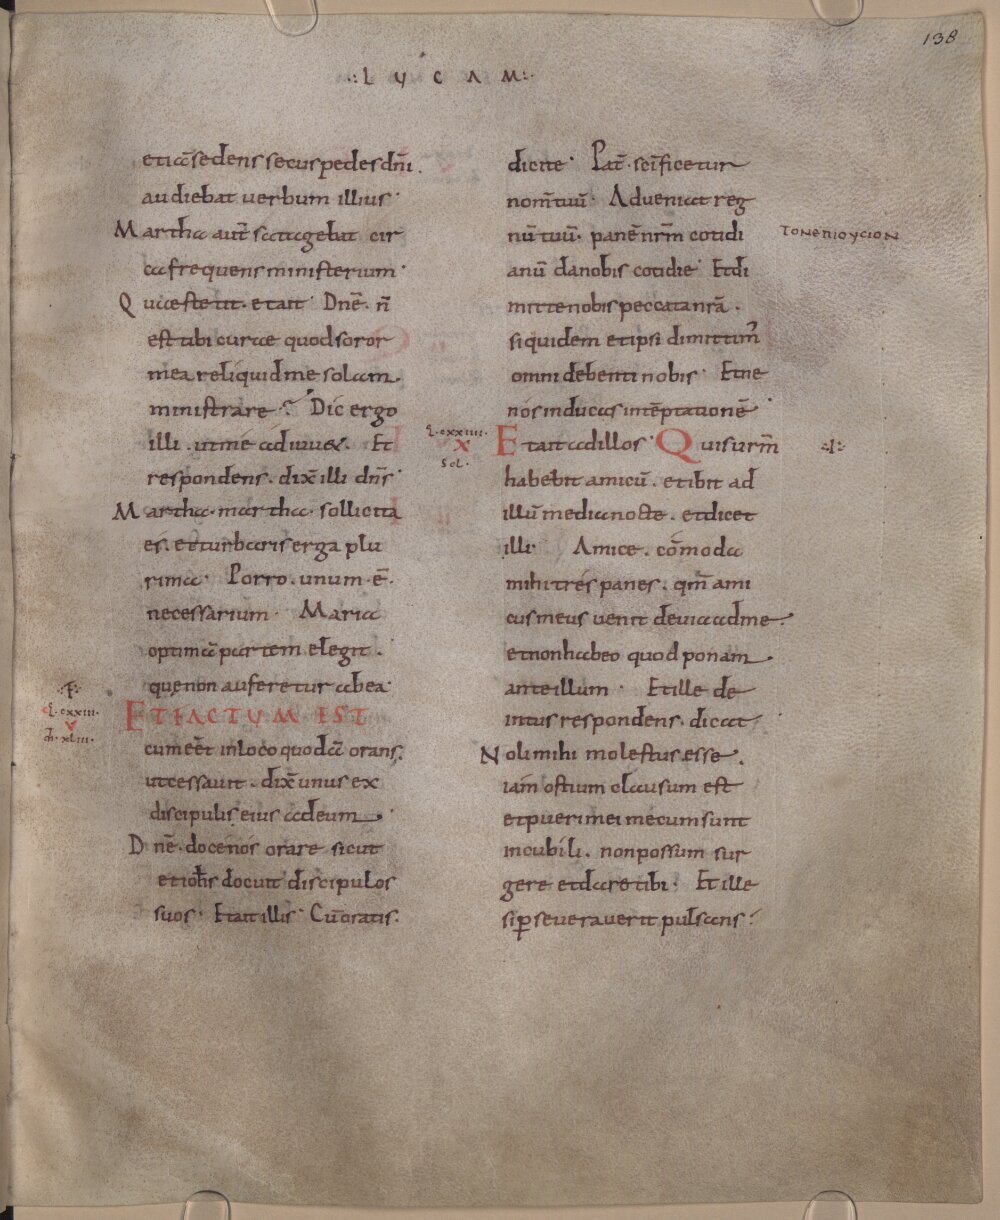 138
·:LVCAM:·
etiā sedens secus pedes dn̄i.
audiebat verbum illius·
Martha aut̄ satagebat cir
ca frequens ministerium·
Quae stetit. et ait· Dn̄e. n̄
est tibi curae quod soror
mea reliquid me solam.
ministrare? Dic ergo
illi. ut me adiuuet. Et
respondens. dix̄ illi dn̄s·
Martha. martha. sollicita
es. et turbaris erga plu
rima· Porro. unum ē.
necessarium· Maria
optimā partem elegit.
quę non auferetur ab ea·
L. cxxiii.
v
ET FACTUM EST
cum eēt in loco quodā orans.
ut cessauit. dix̄ unus ex
discipulis eius ad eum·
Dn̄e. doce nos orare sicut
et ioh̄s docuit discipulos
suos· Et ait illis· Cū oratis.
dicite· Pat̄. sc̄ificetur
nom̄ tuū· Adueniat reg
nū tuū. panē nr̄m cotidi
ΤΟΝΕΠΙΟΥCΙΟΝ
anū da nobis cotidie· Et di
mitte nobis peccata nr̄a.
siquidem et ipsi dimittim̄
omni debenti nobis· Et ne
nos inducas in tēptationē·
L. cxxiiii.
x
Sol.
Et ait ad illos· Quis ur̄m
habebit amicū. et ibit ad
illū media nocte. et dicet
illi· Amice. cōmoda
mihi tres panes. qm̄ ami
cus meus uenit de uia ad me·
et non habeo quod ponam
ante illum· Et ille de
intus respondens. dicat·
Noli mihi molestus esse.
iam ostium clausum est
et pueri mei mecum sunt
in cubili. non possum sur
gere et dare tibi· Et ille
si p̱seuerauerit pulsans·